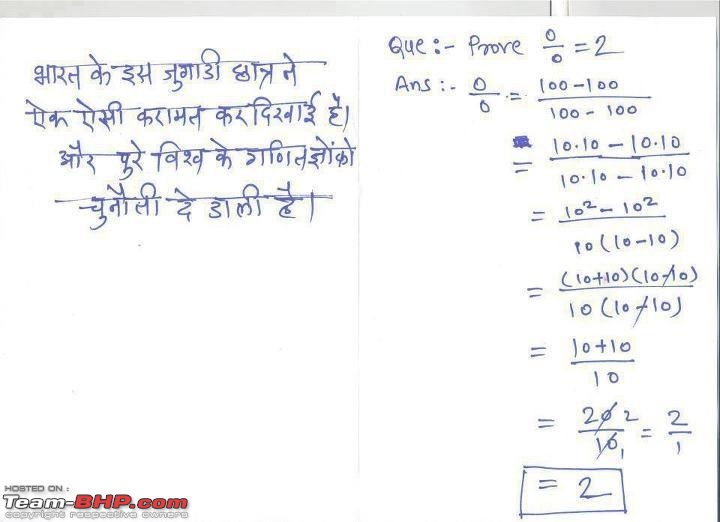 भारत के इस जुगाडी छात्र ने
ऐक ऐसी करामत कर दिखाई है।
और पुरे विश्व के गणितज्ञों को
चुनौती दे डाली है।
Que:- Prove 0/0 = 2
Ans:- 0/0 = (100-100)/(100-100)
= (10·10 - 10·10)/(10·10 - 10·10)
= (10² - 10²)/(10(10-10))
= ((10+10)(10-10))/(10(10-10))
= (10+10)/10
= 20 2/10 1 = 2/1
= 2
HOSTED ON :
Team-BHP.com
copyright respective owners